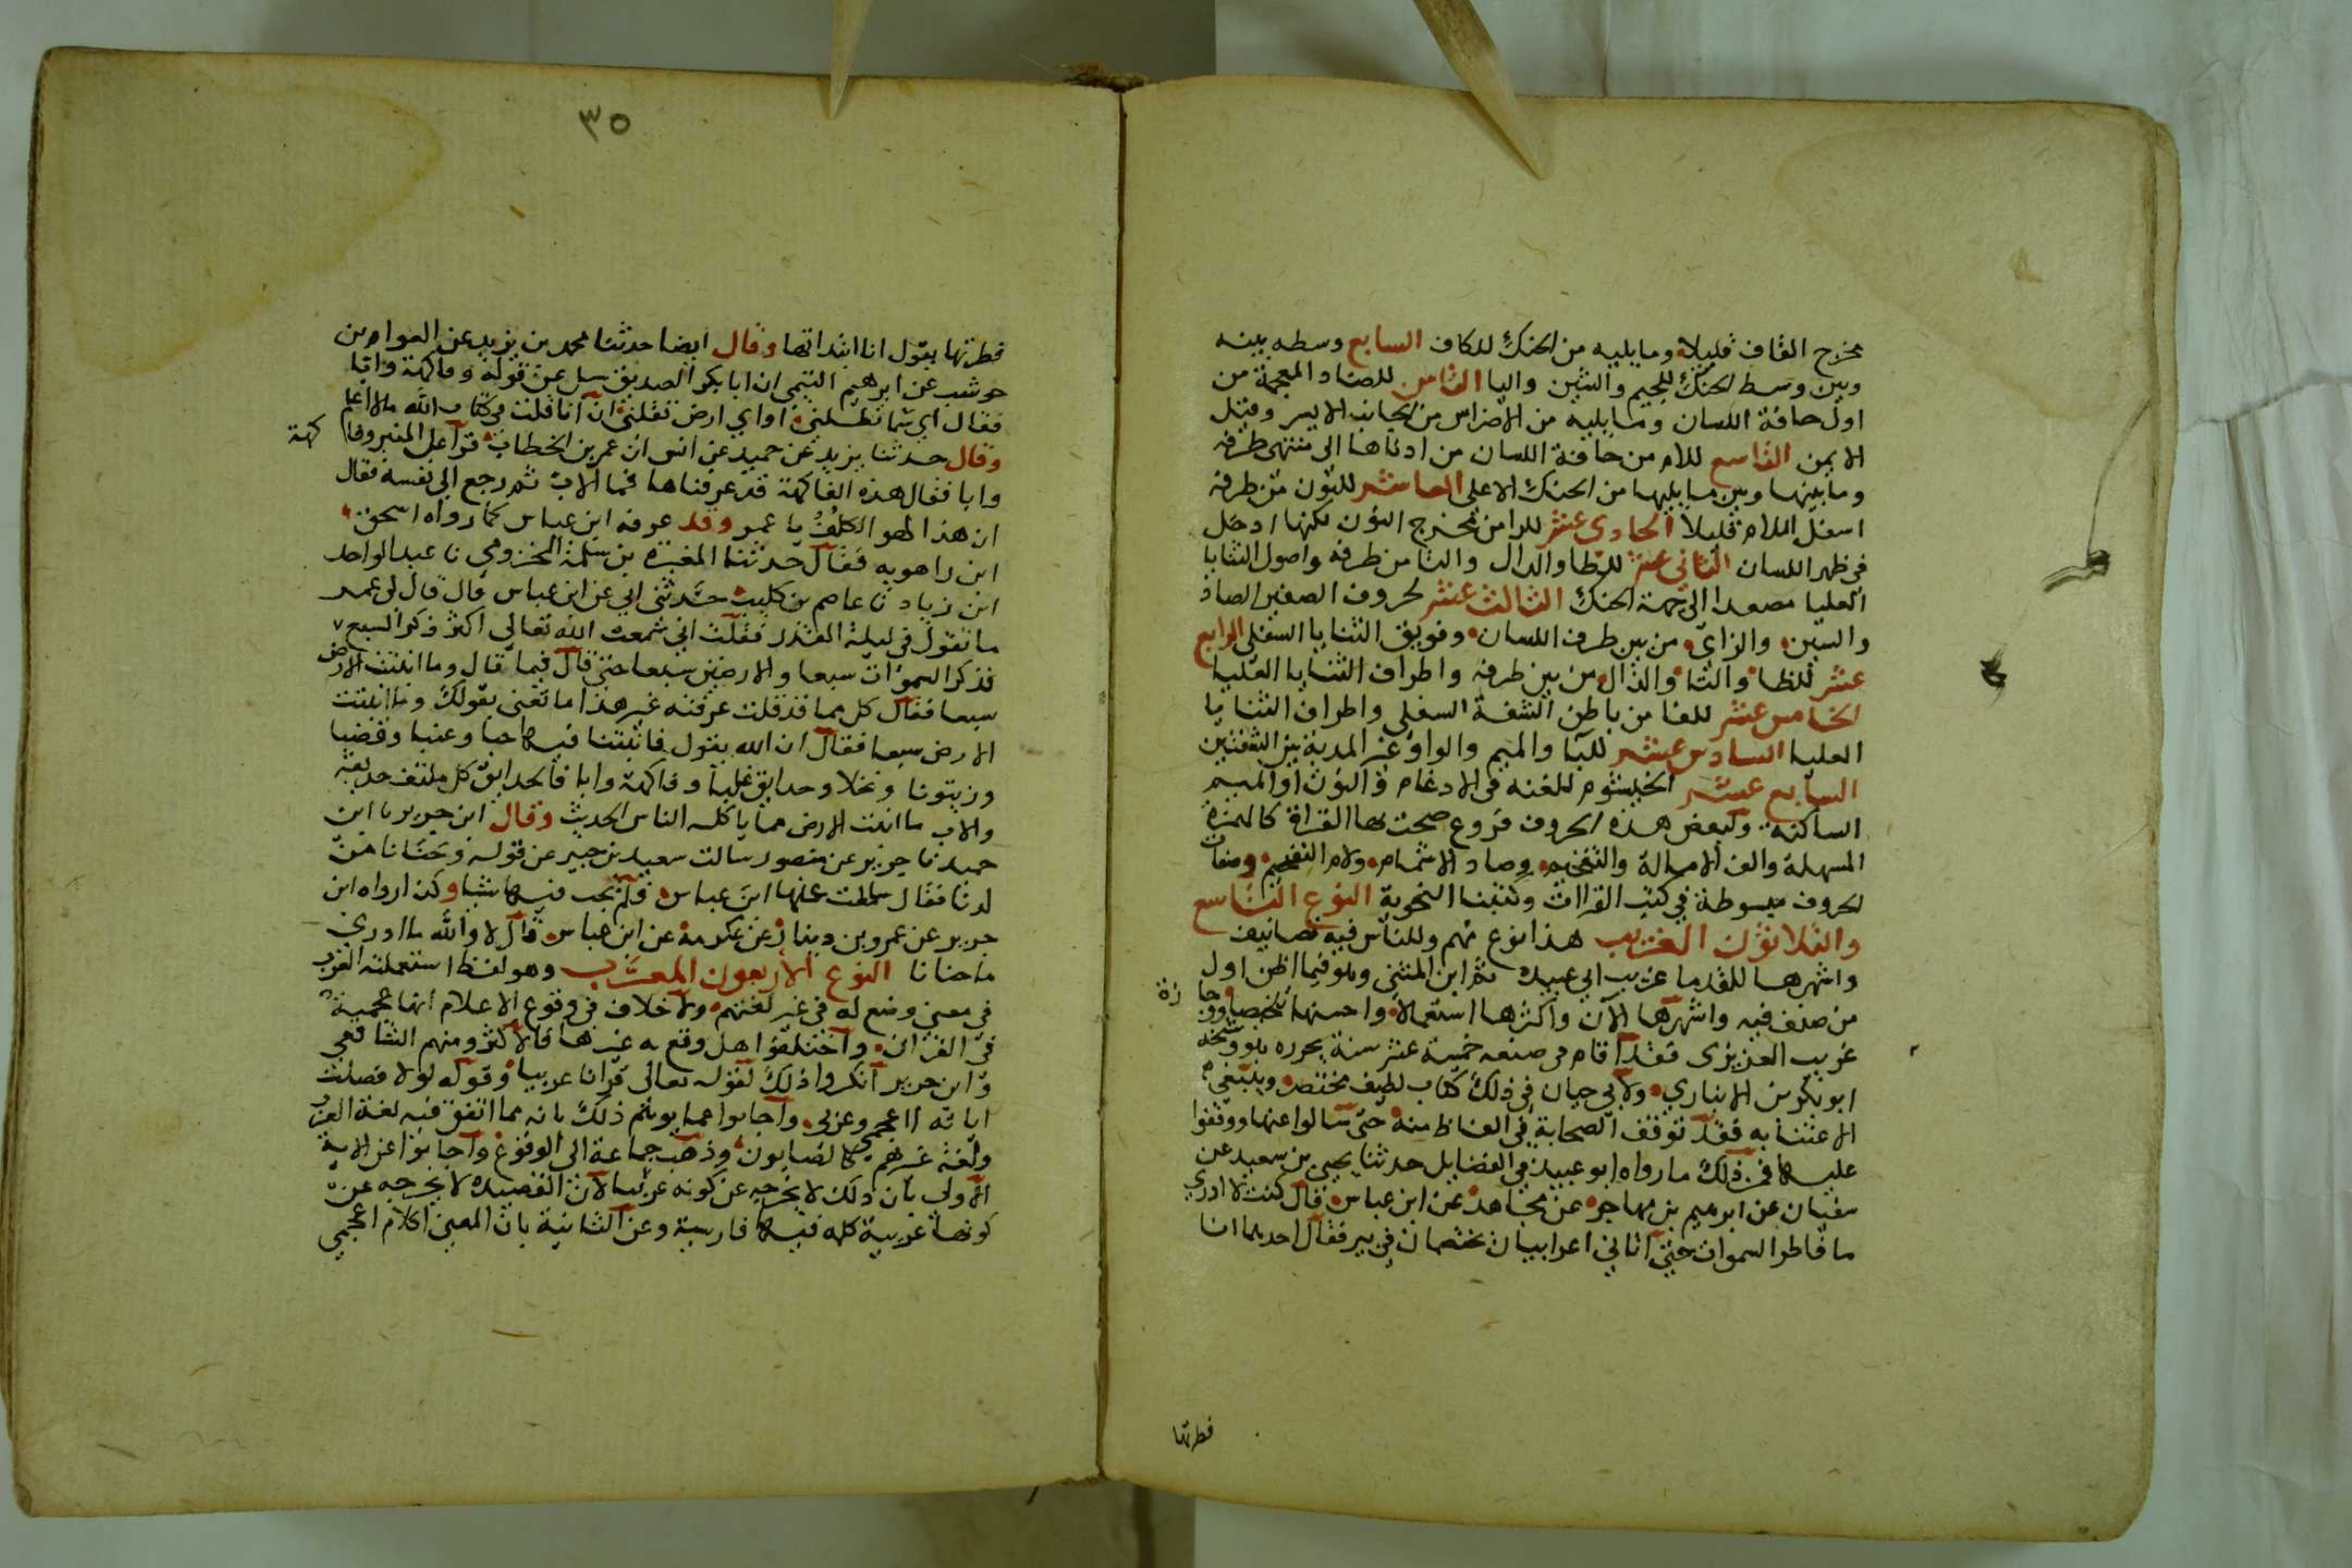 مخرج القاف قليلا وما يليه من الحنك للكاف السابع وسطه بينه
وبين وسط الحنك للجيم والشين واليا الثامن للضاد المعجمة من
اول حافة اللسان وما يليه من الاضراس من الجانب الايسر وقيل
الايمن التاسع للام من حافة اللسان من ادناها الى منتهى طرفه
وما بينها وبين ما يليها من الحنك الاعلى العاشر للنون من طرفه
اسفل اللام قليلا الحادي عشر للرا من مخرج النون لكنها ادخل
في ظهر اللسان الثاني عشر للطا والدال والتا من طرفه واصول الثنايا
العليا مصعدا الى جهة الحنك الثالث عشر لحروف الصفير الصاد
والسين والزاي من بين طرف اللسان وفويق الثنايا السفلى الرابع
عشر للظا والثا والذال من بين طرفه واطراف الثنايا العليا
الخامس عشر للفا من باطن الشفة السفلى واطراف الثنايا
العليا السادس عشر للبا والميم والواو غير المدية بين الشفتين
السابع عشر الخيشوم للغنة في الادغام و النون او الميم
الساكنة ولبعض هذه الحروف فروع صحت بها القراة كالهمزة
المسهلة والف الامالة والتفخيم وصاد الاشمام ولام التفخيم وصفات
الحروف مبسوطة في كتب القراات وكتبنا النحوية النوع التاسع
والثلاثون الغريب هذا نوع مهم وللناس فيه تصانيف
واشهرها للقدما غريب ابي عبيدة معمر ابن المثنى وهو فيما اظن اول
من صنف فيه واشهرها الآن واكثرها استعمالا واحسنها تلخيصا ووجا زة
غريب العزيزي فقد اقام في صنعه خمسة عشر سنة يحرره هو وشيخه
ابو بكر بن الانباري ولابي حيان في ذلك كتاب لطيف مختصر وينبغي
الاعتنا به فقد توقف الصحابة في الفاظ منه حتى سالوا عنها ووقفوا
عليها فمن ذلك ما رواه ابو عبيد في الفضايل حدثنا يحيى بن سعيد عن
سفيان عن ابرهيم بن مهاجر عن مجاهد عن ابن عباس قال كنت لا ادري
ما فاطر السموات حتى اتاني اعرابيان يختصمان في بير فقال احدهما انا
فطرتها
٣٥
فطرتها يقول انا ابتداتها وقال ايضا حدثنا محمد بن يزيد عن العوام بن
حوشب عن ابرهيم التيمي ان ابا بكر الصديق سل عن قوله وفاكهة وابا
فقال اي سما تظلني او اي ارض تقلني ان انا قلت في كتاب الله ما لا اعلم
وقال حدثنا يزيد عن حميد عن انس ان عمر بن الخطاب قرا على المنبر وفا كهة
وابا فقال هذه الفاكهة قد عرفناها فما الاب ثم رجع الى نفسه فقال
ان هذا لهو الكلف يا عمر وقد عرفه ابن عباس كما رواه اسحق
ابن راهويه فقال حدثنا المغيرة بن سلمة المخزومي نا عبد الواحد
ابن زياد نا عاصم بن كليب حدثني ابي عن ابن عباس قال قال لي عمر
ما تقول في ليلة القدر فقلت اني سمعت الله تعالى اكثر ذكر السبع
فذكر السموات سبعا والارضين سبعا حتى قال فيما قال وما انبتت الارض
سبعا فقال كل مما قد قلت عرفته غير هذا ما تعني بقولك وما انبتت
الارض سبعا فقال ان الله يقول فانبتنا فيها حبا وعنبا وقضبا
وزيتونا ونخلا وحدايق غلبا وفاكهة وابا فالحدايق كل ملتف حديقة
والاب ما انبتت الارض مما يا كله الناس الحديث وقال ابن جرير نا ابن
حميد نا جرير عن منصور سالت سعيد بن جبير عن قوله وحنانا من
لدنا فقال سالت عنها ابن عباس فلم يجب فيها شيا وكذا رواه ابن
جرير عن عمرو بن دينار عن عكرمة عن ابن عباس قال لا والله ما ادري
ما حنانا النوع الاربعون المعرب وهو لفظ استعملته العرب
في معنى وضع له في غير لغتهم ولا خلاف في وقوع الاعلام العجمية
في القران واختلفوا هل وقع به غيرها فالاكثر ومنهم الشافعي
وابن جرير انكروا ذلك لقوله تعالى قرانا عربيا وقوله لولا فصلت
اياته ااعجمي وعربي واجابوا عما يوهم ذلك بانه مما اتفق فيه لغة العرب
ولغة غيرهم كالصابون وذهب جماعة الى الوقوع واجابوا عن الاية
الاولى بان ذلك لا يخرجه عن كونه عربيا لان القصيدة لا يخرجه عن
كونها عربية كلمة فيها فارسية وعن الثانية بان المعنى اكلام اعجمي